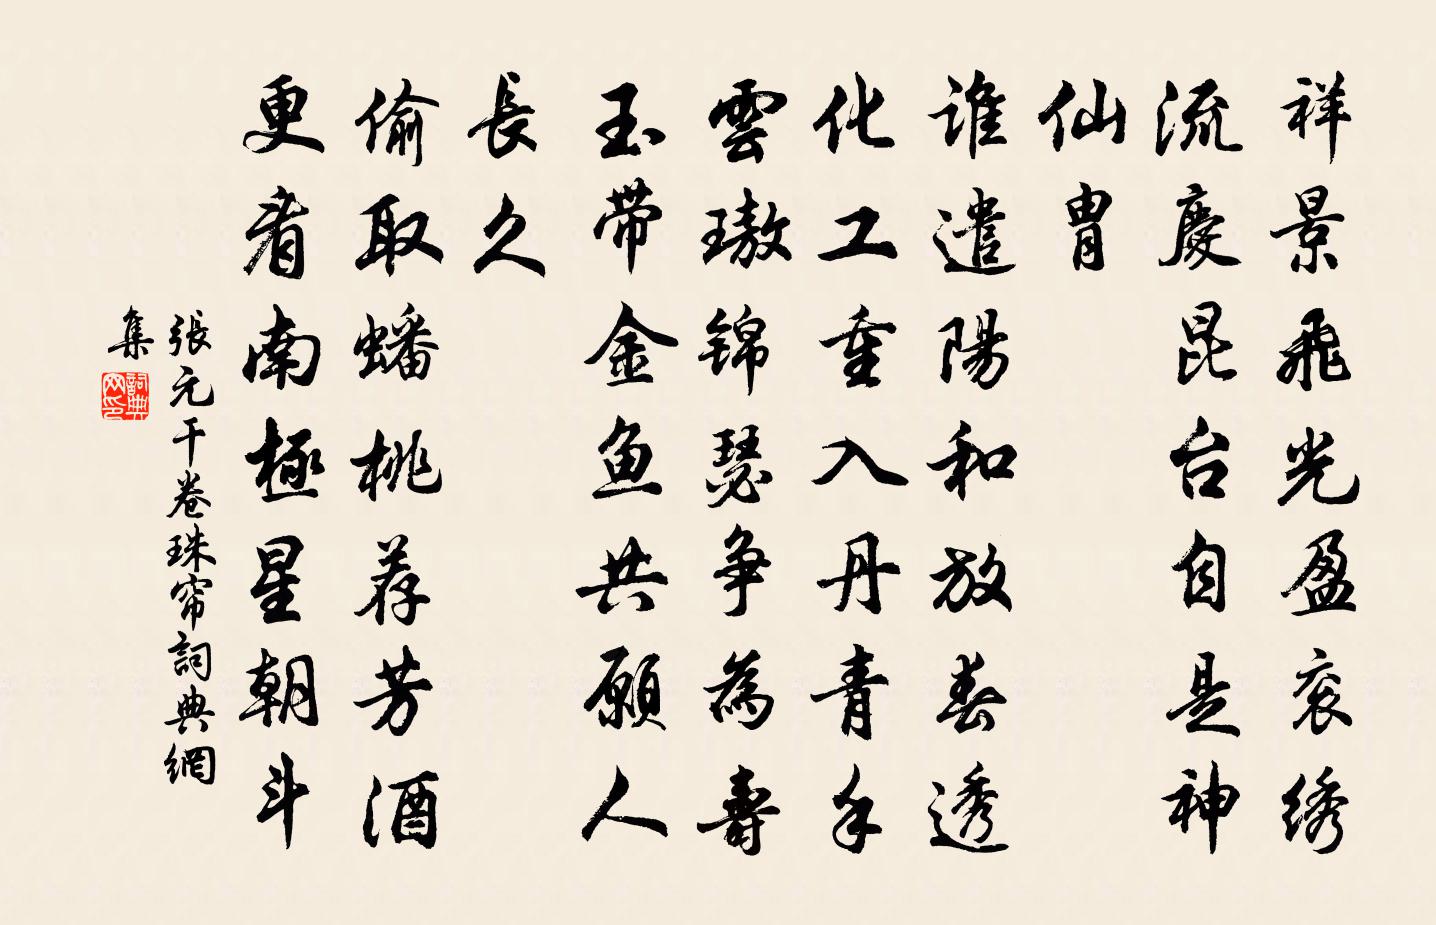 祥景飛光盈衮绣
流慶昆台自是神
仙胄
誰遣陽和放春透
化工重入丹青手
雲璈錦瑟争為壽
玉帶金鱼共願人
長久
偷取蟠桃荐芳酒
更看南極星朝斗
張元干卷珠帘詞典網
集
詞典
网